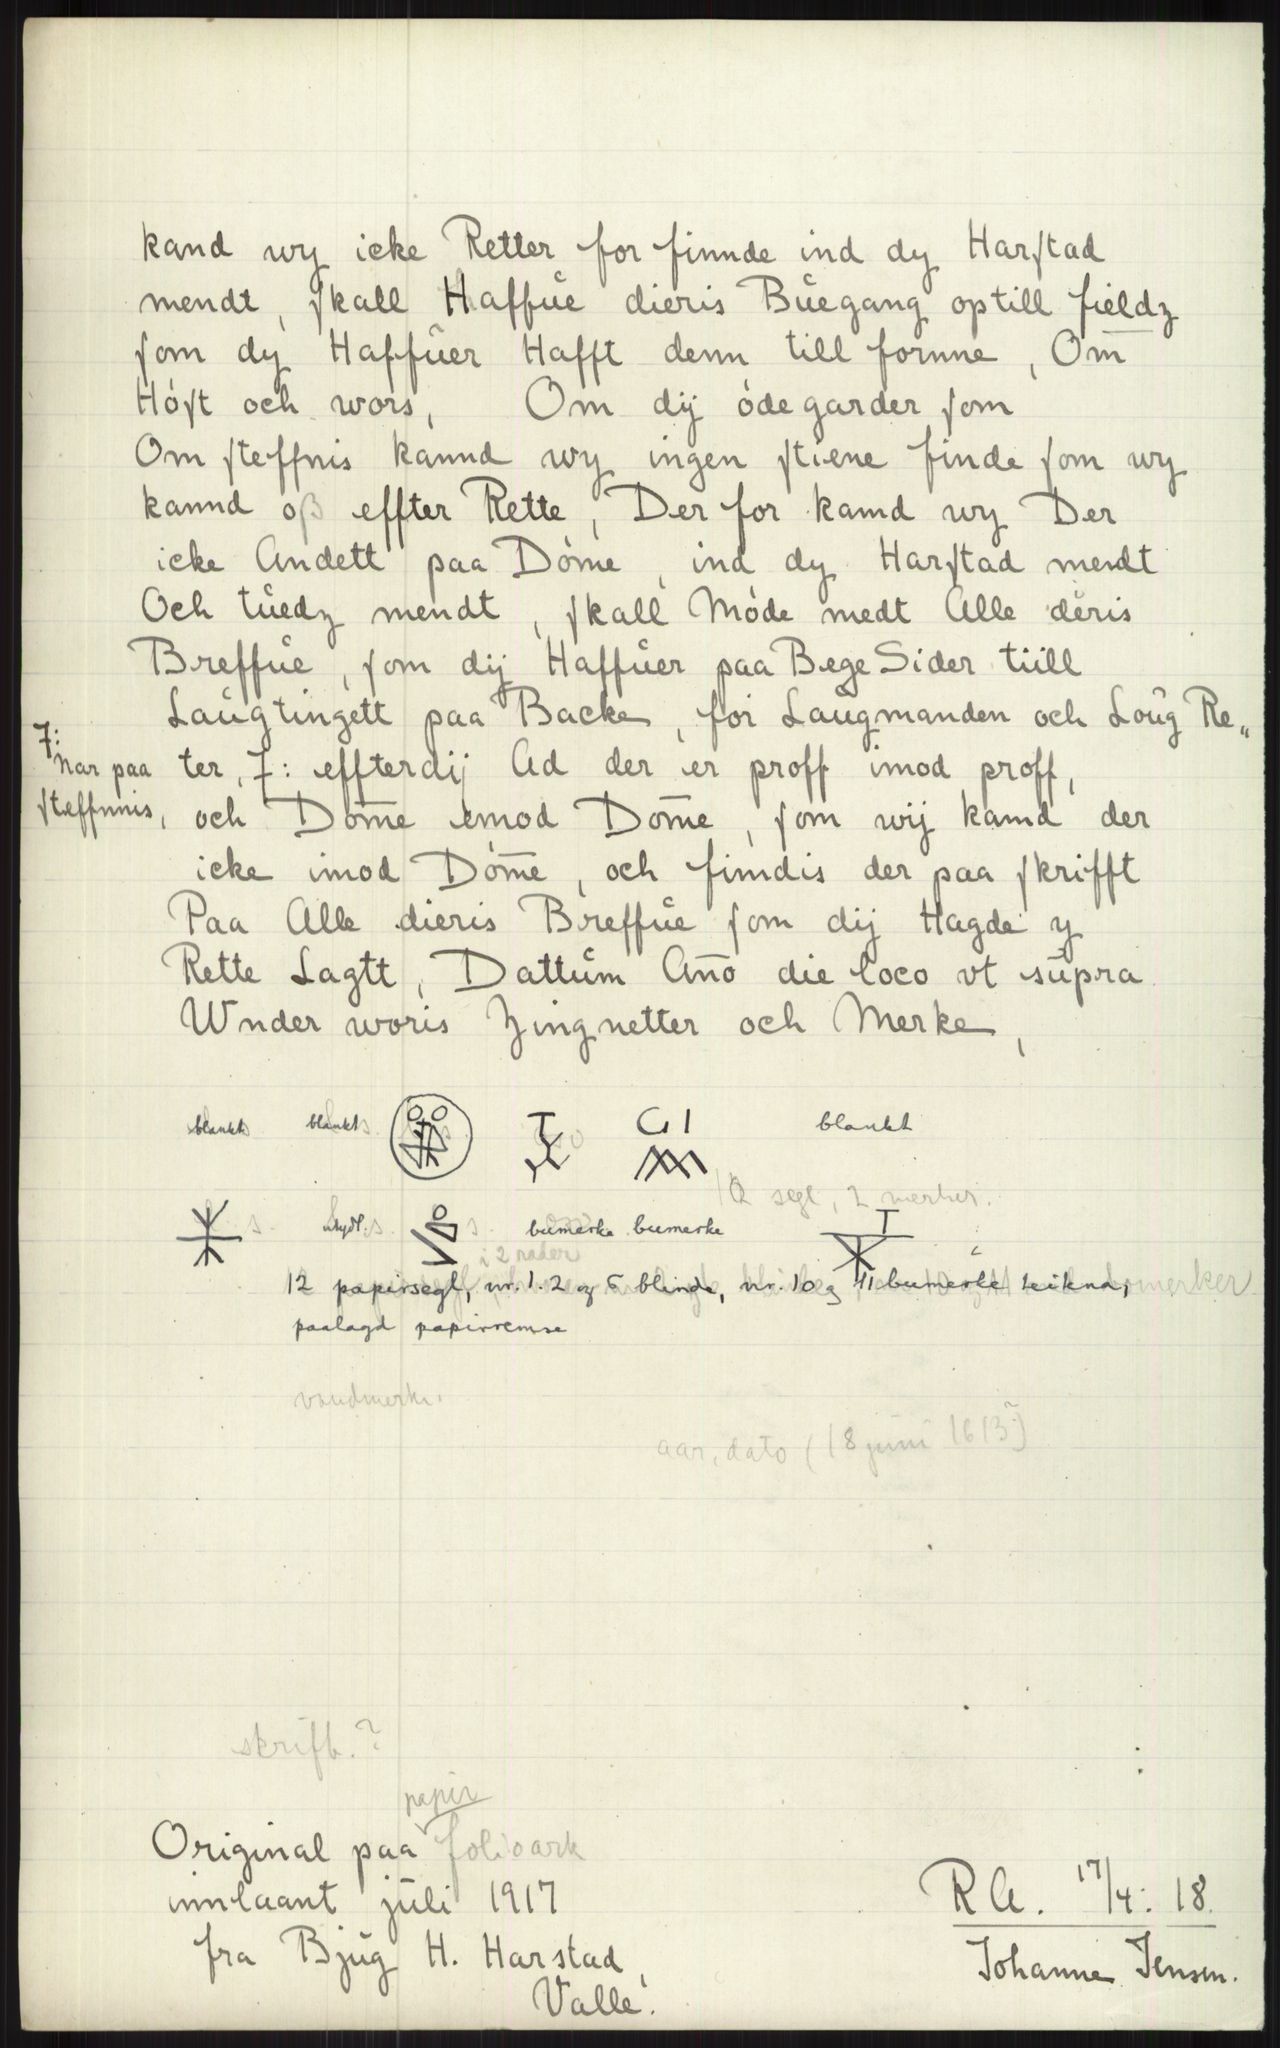 kand wy icke Retter for finnde ind dy Harſtad
mendt, ſkall Haffŭe dieris Bŭegang optill fieldz
ſom dy Haffŭer Hafft denn till fornne, Om̄
Hóſt och wors, Om dij ódegarder ſom
Om ſteffnis kannd wy ingen ſtiene finde ſom wy
kannd oß effter Rette, Der for kand wy Der
icke Andett paa Dóme, ind dy Harſtad mendt
Och tŭedz mendt, ſkall Móde medt Alle dĕris
Breffŭe, ſom dij Haffŭer paa Bege Sider tiill
Laŭgtingett paa Backe, for Laŭgmanden och Loŭg Re„
7:
Nar paa
ſteffnnis,
ter, 7: effterdij Ad der er proff imod proff,
och Dom̄e emod Dom̄e, ſom wij kand der
icke imod Dóm̄e, och findis der paa ſkrifft
Paa Alle dieris Breffŭe ſom dij Hagde y
Rette Lagtt, Dattŭm An̄o die loco vt sŭpra
Wnder woris Zingnetter och Merke,
blankt blankt T G I blankt
12 segl, 2 merker.
s. s. bumerke bumerke T
i 2 rader
12 papirsegl, nr. 1. 2 og 6 blinde, nr. 10 og 11 bumerke teikna,
paalagd papirremse
vandmerke.
aar, dato (18 juni 1613?)
skrift.?
papir
Original paa folioark
innlaant jŭli 1917
fra Bjŭg H. Harstad,
Valle.
R A. 17/4: 18.
Johanne Jensen.